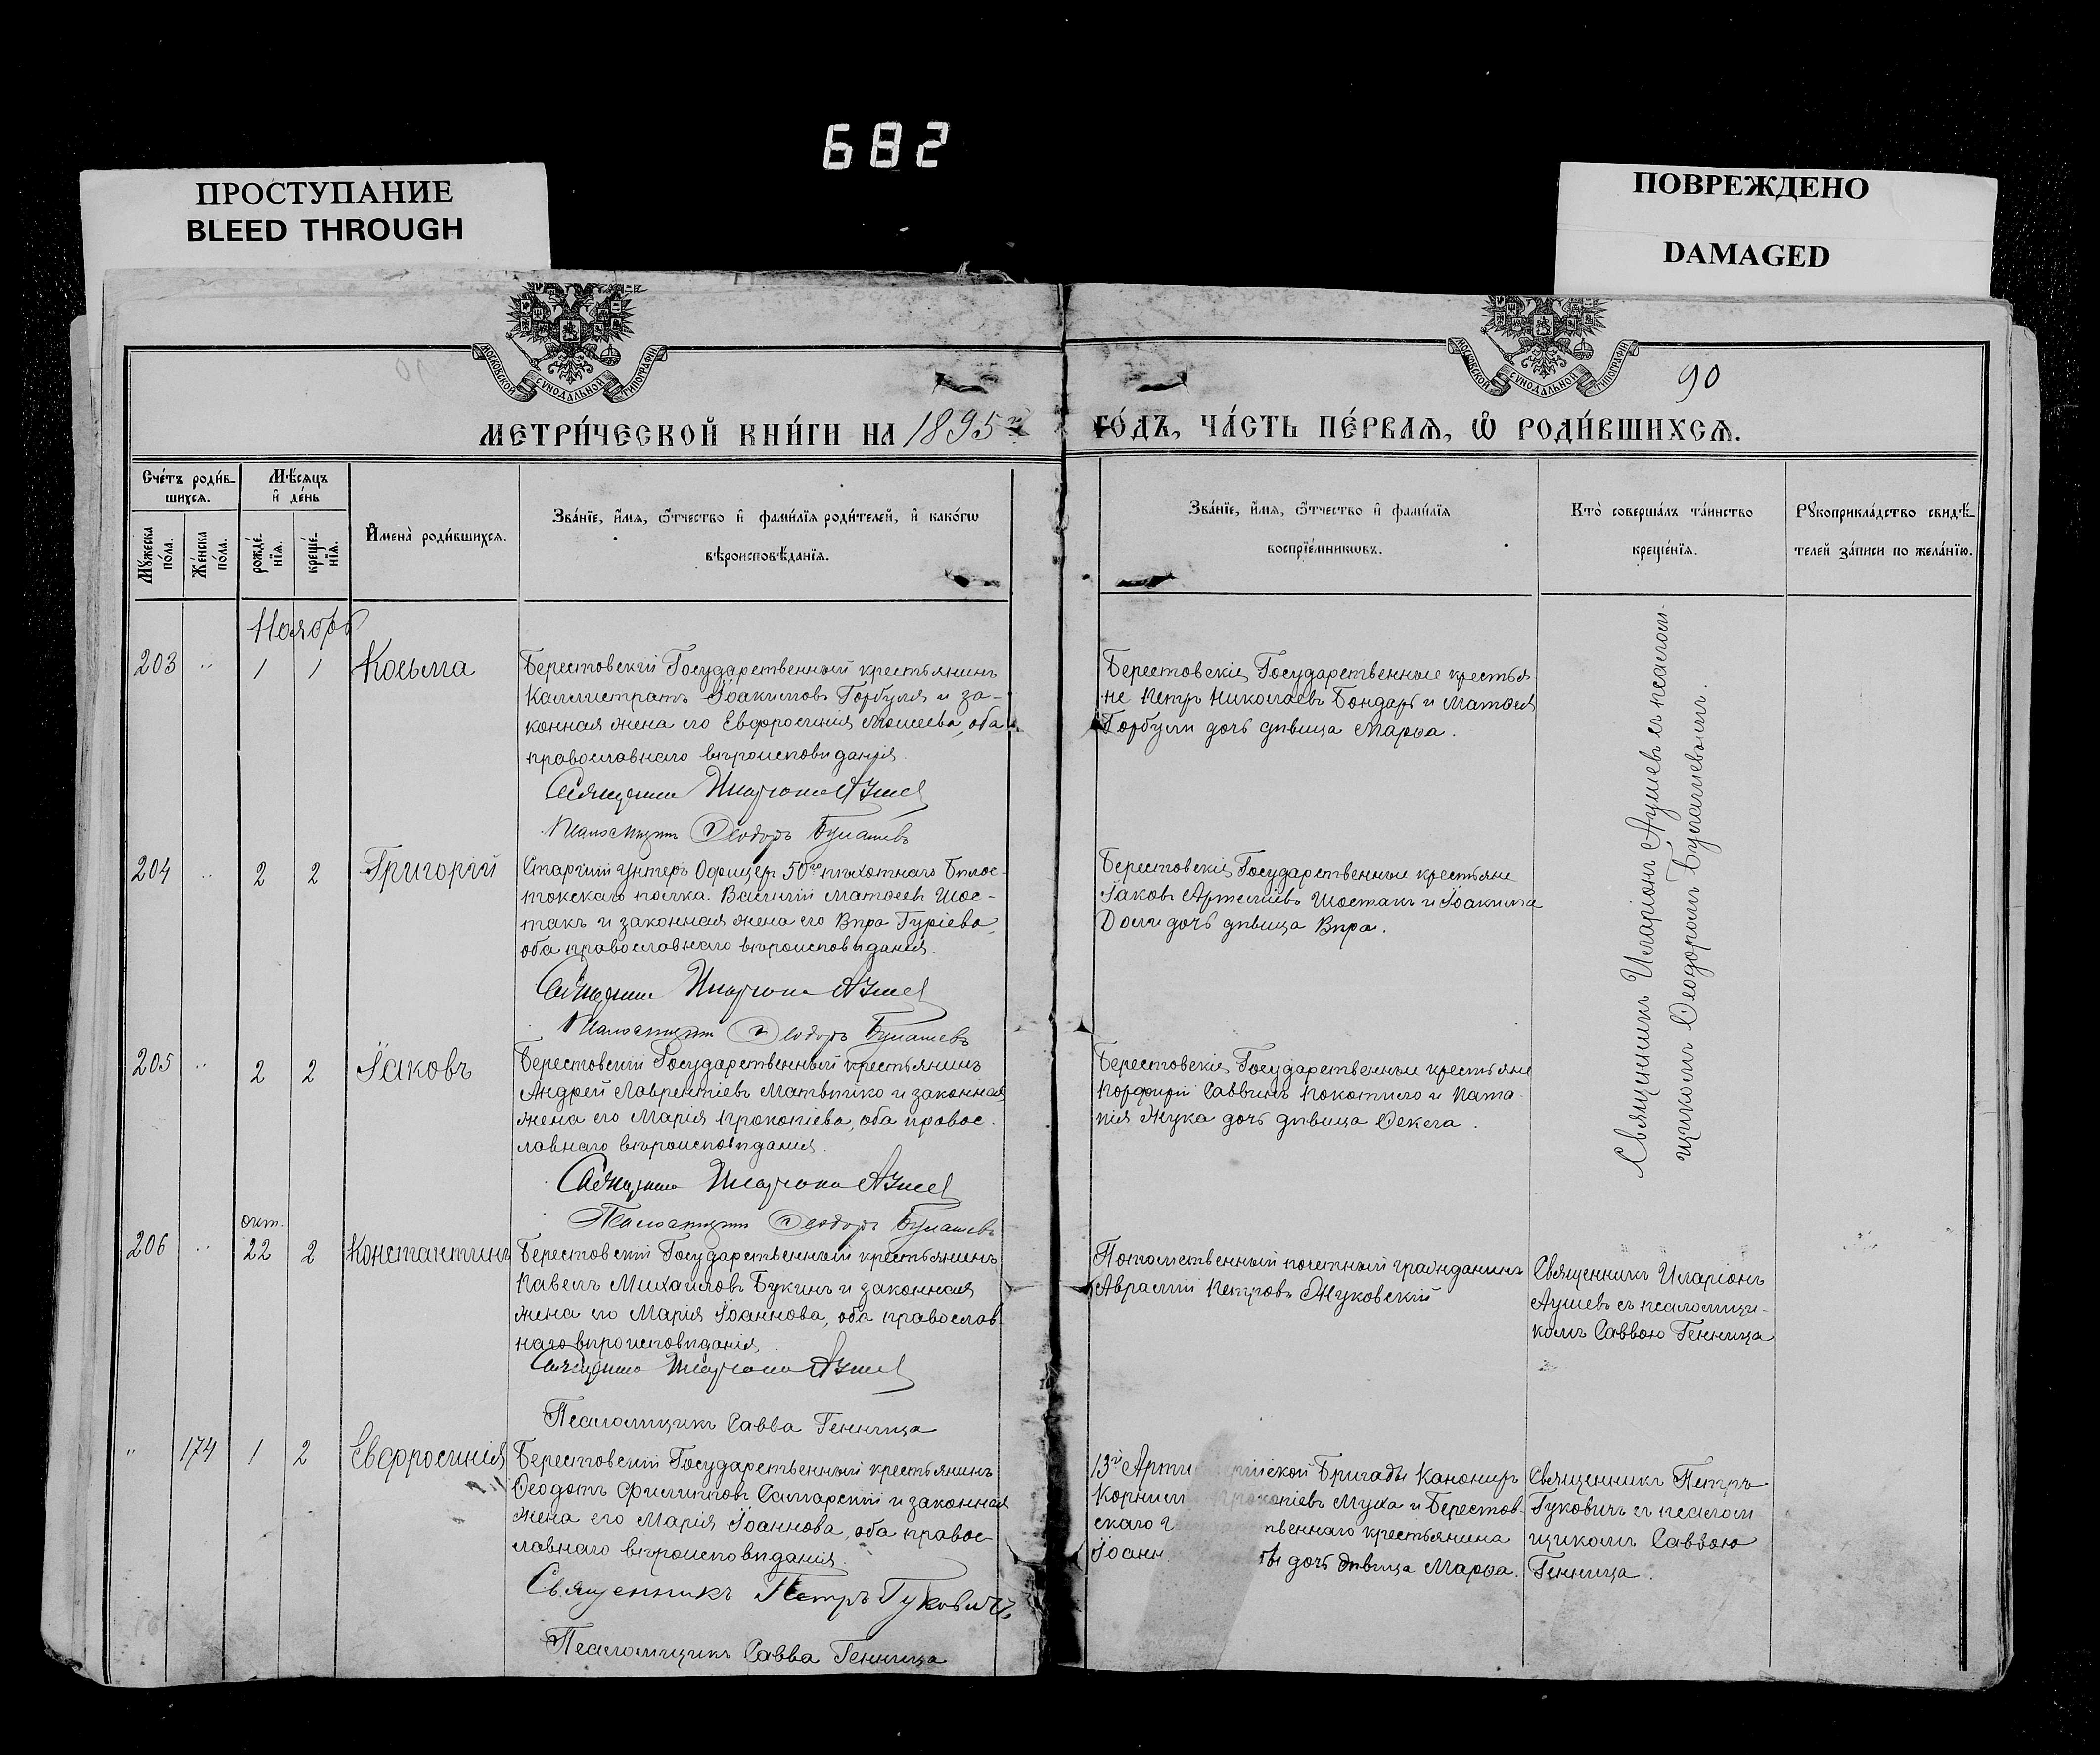 682
ПРОСТУПАНИЕ
BLEED THROUGH
ПОВРЕЖДЕНО
DAMAGED
МОСКОВСКОЙ СУНОДАЛЬНОЙ ТИПОГРАФІИ
МОСКОВСКОЙ СУНОДАЛЬНОЙ ТИПОГРАФІИ
90
МЕТРИ́ЧЕСКОЙ КНИ́ГИ НА 1895й
ГО́ДЪ, ЧА́СТЬ ПЕ́РВАЯ, Ѡ РОДИ́ВШИХСЯ.
Сче́тъ роди́в-
шихся.
Мѣ́сяцъ
и҆ де́нь
Му́жеска по́ла.
Же́нска по́ла.
рожде́нїя.
креще́нїя.
И҆мена̀ роди́вшихся.
Зва́нїе, и҆́мя, ѻ҆́тчество и҆ фами́лїя роди́телей, и҆ како́гѡ
вѣроисповѣ́данїя.
Зва́нїе, и҆́мя, ѻ҆́тчество и҆ фами́лїя
воспрїе́мникѡвъ.
Кто̀ соверша́лъ та́инство
креще́нїя.
Рꙋкоприкла́дство свидѣ́-
телей за́писи по жела́нїю.
Ноябрь
203 " 1 1 Косьма
Берестовскій Государственный крестьянинъ
Каллистратъ Іоакимовъ Горбуля и за-
конная жена его Евфросинія Моисеева, оба
православнаго вѣроисповѣданія.
Священникъ Иларіонъ Аушев
Псаломщикъ Ѳеодоръ Булашевъ
Берестовскіе Государственные крестья-
не Петръ Николаевъ Бондарь и Матѳея
Горбули дочь дѣвица Марѳа.
Священникъ Иларіонъ Аушевъ съ псалом-
щикомъ Ѳеодоромъ Булашевымъ.
204 " 2 2 Григорій
Старшій Унтеръ Офицеръ 50го пѣхотнаго Бѣлос-
токскаго полка Василій Матѳеевъ Шос-
такъ и законная жена его Вѣра Гуріева,
оба православнаго вѣроисповѣданія.
Священникъ Иларіонъ Аушев
Псаломщикъ Ѳеодоръ Булашевъ
Берестовскіе Государственные крестьяне
Іаковъ Артеміевъ Шостакъ и Іоакима
Доли дочь дѣвица Вѣра.
205 " 2 2 Іаковъ
Берестовскій Государственный крестьянинъ
Андрей Лаврентіевъ Матвѣйко и законная
жена его Марія Прокопіева, оба правос-
лавнаго вѣроисповѣданія.
Священникъ Иларіонъ Аушев
Псаломщикъ Ѳеодоръ Булашевъ
Берестовскіе Государственные крестьяне
Порфирій Саввинъ Покотило и Пата-
пія Жука дочь дѣвица Ѳекла.
окт.
206 " 22 2 Константинъ
Берестовскій Государственный крестьянинъ
Павелъ Михаиловъ Букинъ и законная
жена его Марія Іоаннова, оба православ-
наго вѣроисповѣданія.
Священникъ Иларіонъ Аушев
Псаломщикъ Савва Генница
Потомственный почетный гражданинъ
Авраамій Петровъ Жуковскій
Священникъ Иларіонъ
Аушевъ съ псаломщи-
комъ Саввою Генница
" 174 1 2 Евфросинія
Берестовскій Государственный крестьянинъ
Ѳеодотъ Филипповъ Самарскій и законная
жена его Марія Іоаннова, оба правос-
лавнаго вѣроисповѣданія.
Священникъ Петръ Гуковичъ
Псаломщикъ Савва Генница
13й Арти рійской Бригады Канониръ
Корнил Прокопіевъ Муха и Берестов-
скаго Г твеннаго крестьянина
Іоанн дочь дѣвица Марѳа.
Священникъ Петръ
Гуковичъ съ псалом
щикомъ Саввою
Генница.